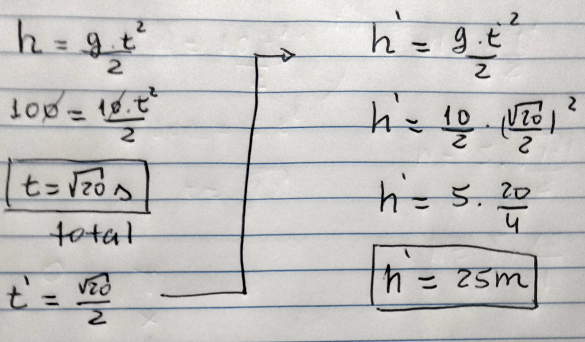 h = g.t²/2
100 = 10.t²/2
t = √20 s
total
t' = √20/2
h' = g.t'²/2
h' = 10/2 . (√20/2)²
h' = 5. 20/4
h' = 25m